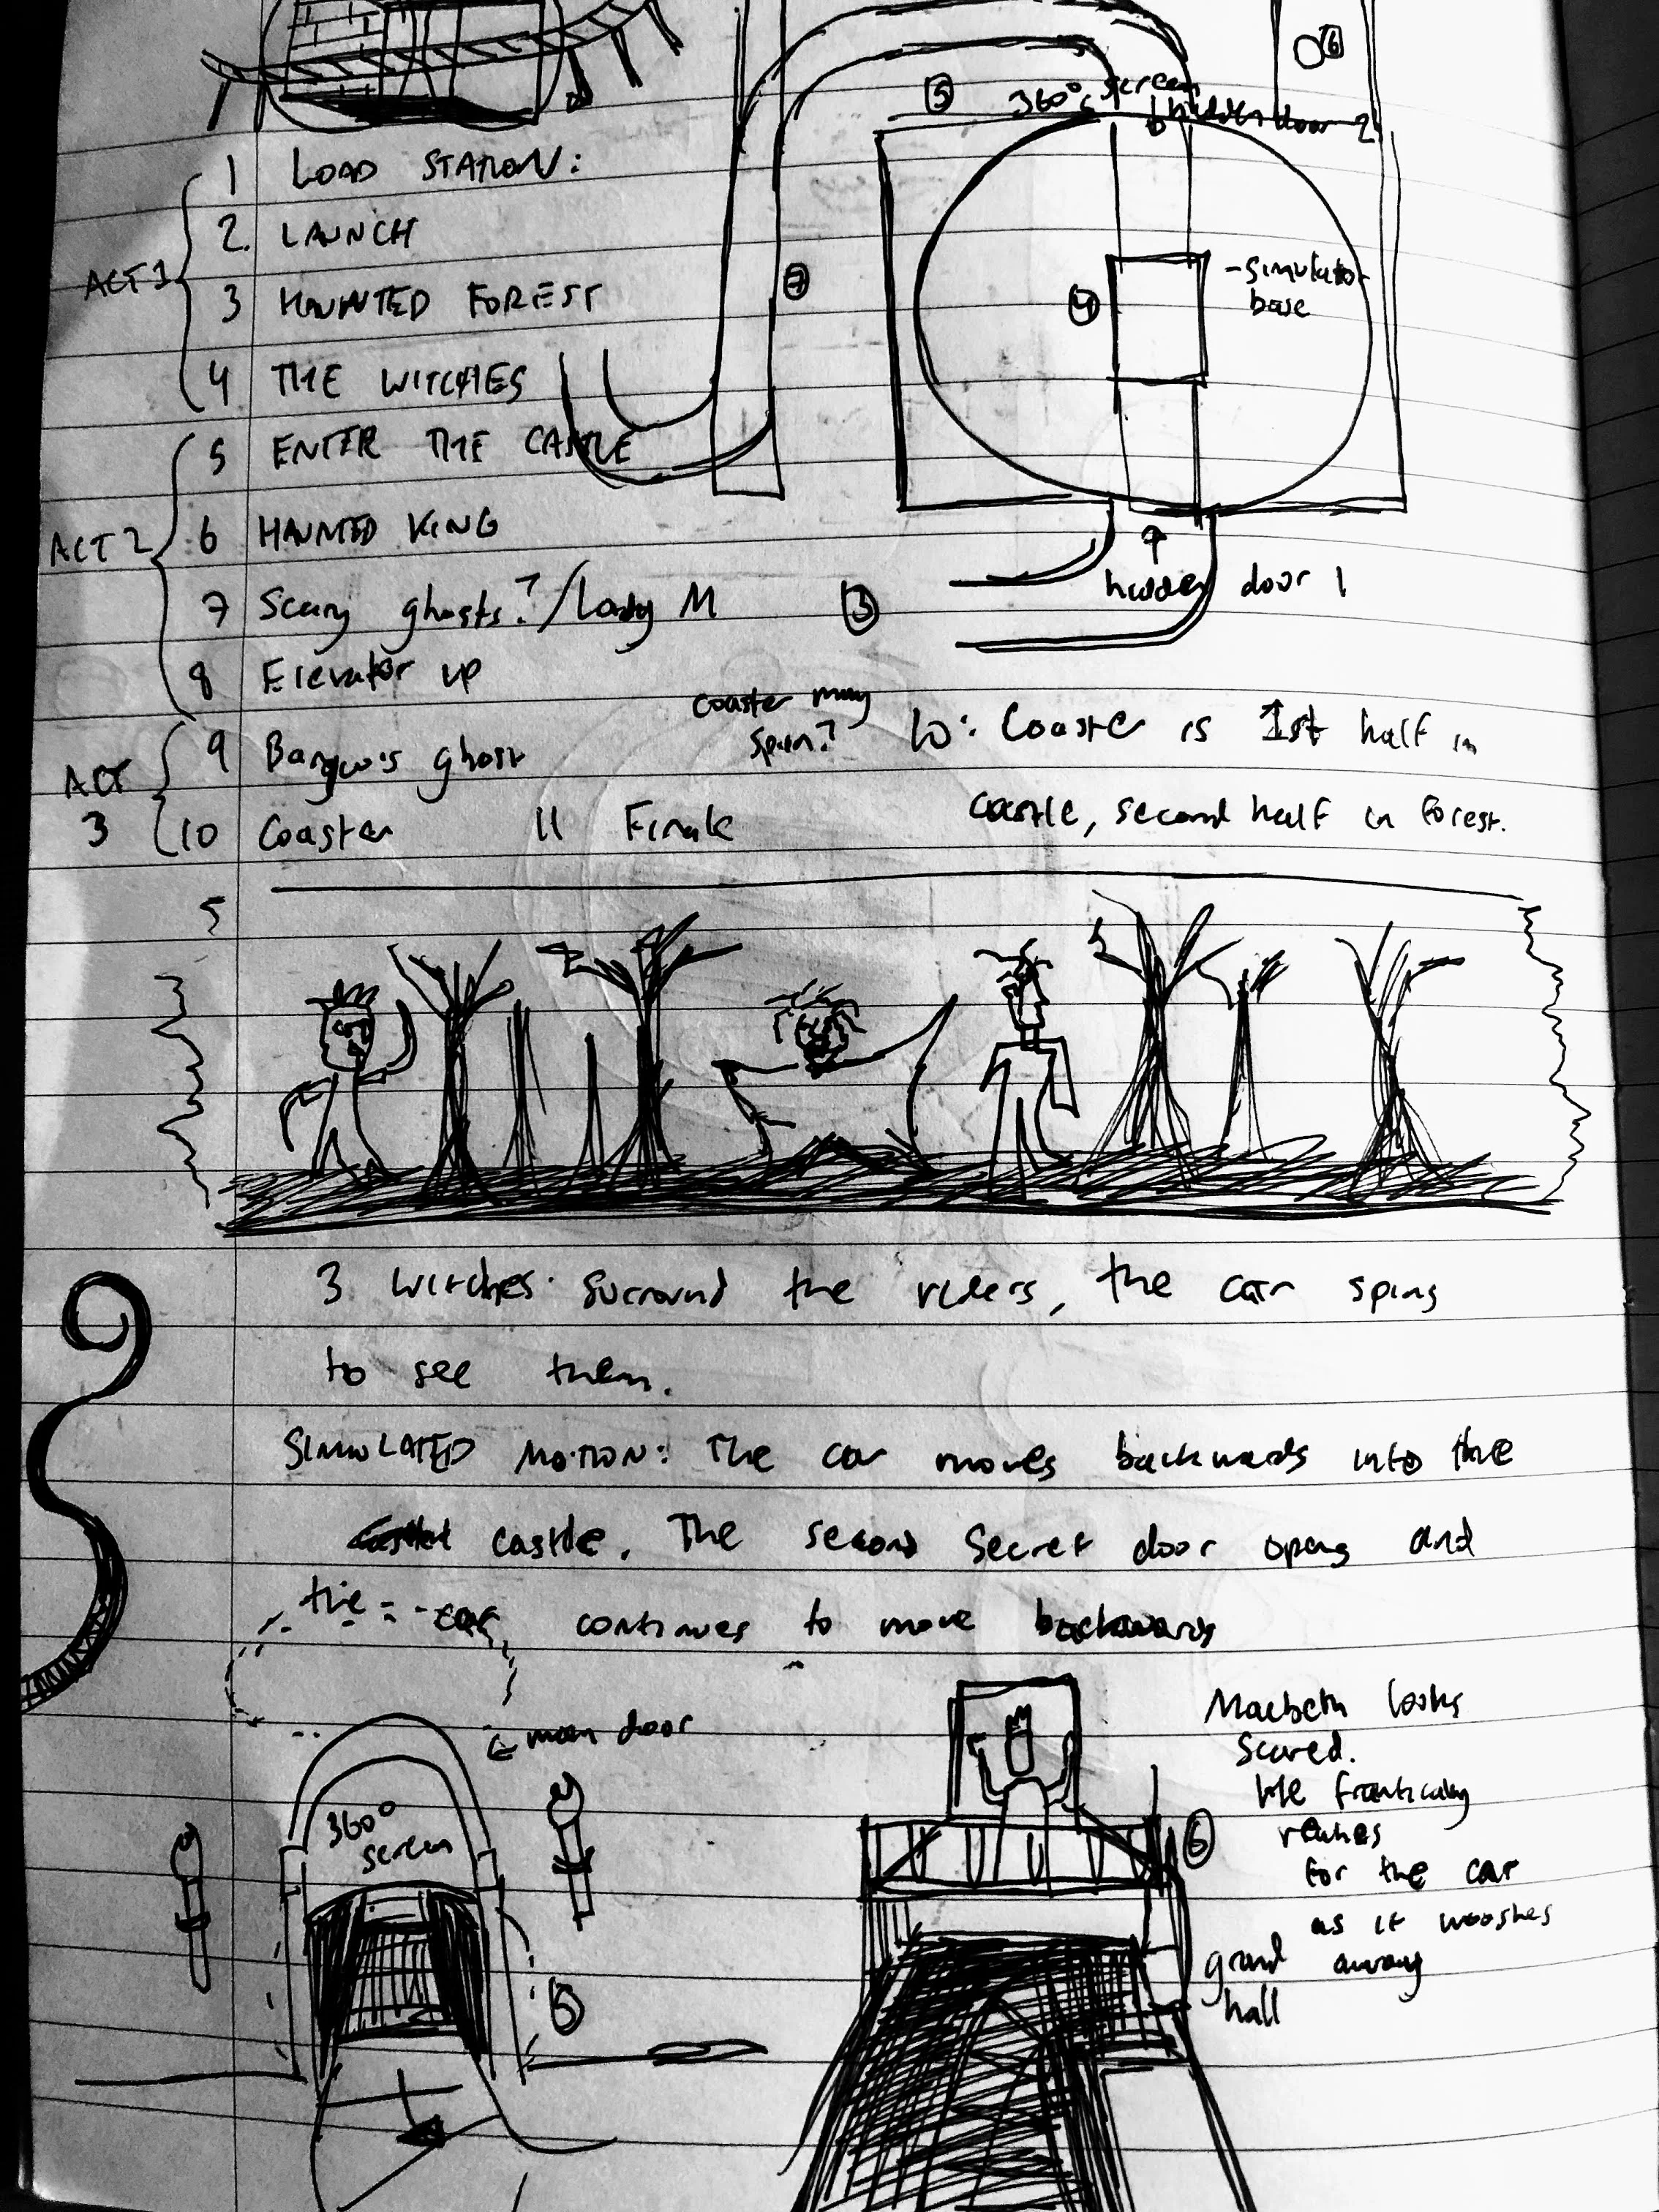 6
5 360° screen
hidden door 2
1 LOAD STATION:
2. LAUNCH
ACT 1
3 HAUNTED FOREST
7
4
- simulator
base
4 THE WITCHES
5 ENTER THE CASTLE
ACT 2
6 HAUNTED KING
hidden door 1
7 Scary ghosts? / Lady M
3
8 Elevator up
coaster may
spin?
10: Coaster is 1st half in
castle, second half in forest.
ACT
3
9 Banquo's ghost
10 Coaster 11 Finale
5
3 witches surround the riders, the car spins
to see them.
SIMULATED MOTION: The car moves backwards into the
castle. The second secret door opens and
the car continues to move backwards
main door
360°
screen
5
Macbeth looks
scared.
He frantically
reaches
for the car
as it wooshes
away
6
grand
hall